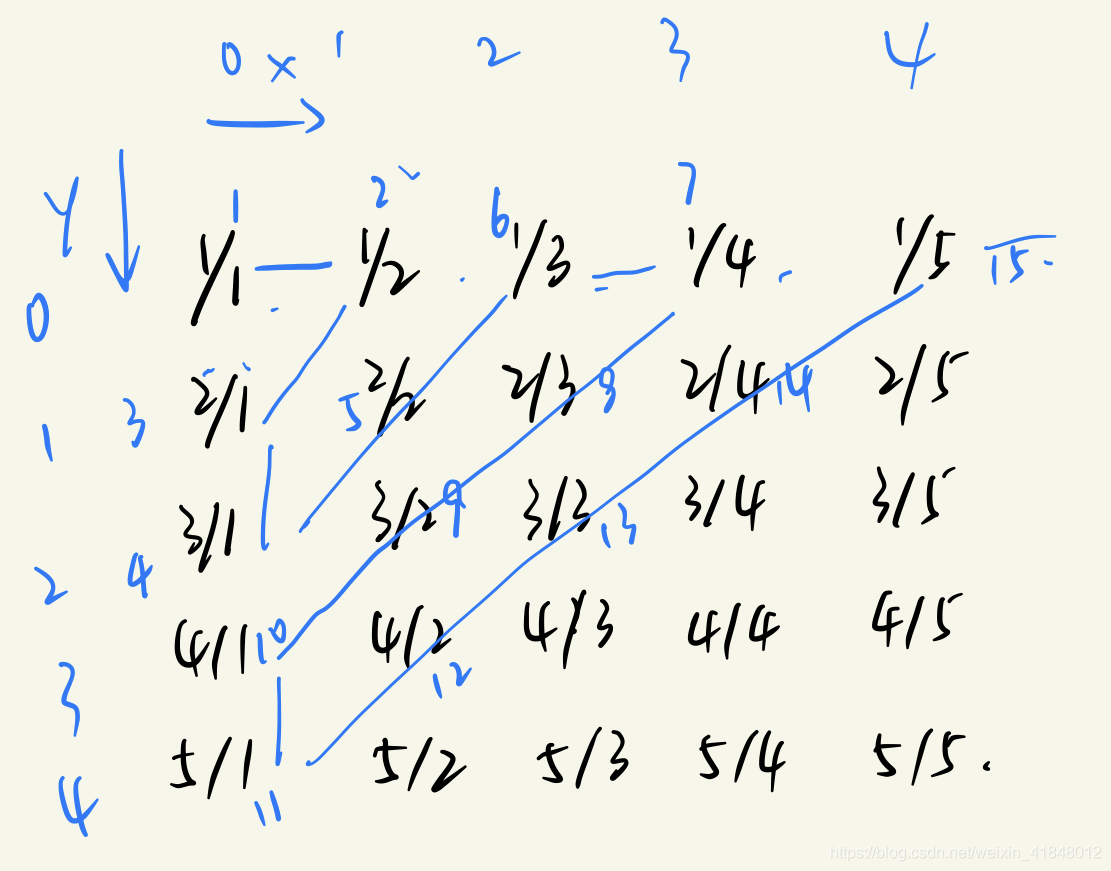 0 x 1 2 3 4
Y
1 2 6 7
0 1/1 1/2 1/3 1/4 1/5 15
1 3 2/1 5 2/2 2/3 8 2/4 14 2/5
3/1 3/2 9 3/3 13 3/4 3/5
2 4
4/1 10 4/2 4/3 4/4 4/5
3 12
5/1 5/2 5/3 5/4 5/5.
4 11
https://blog.csdn.net/weixin_41848012